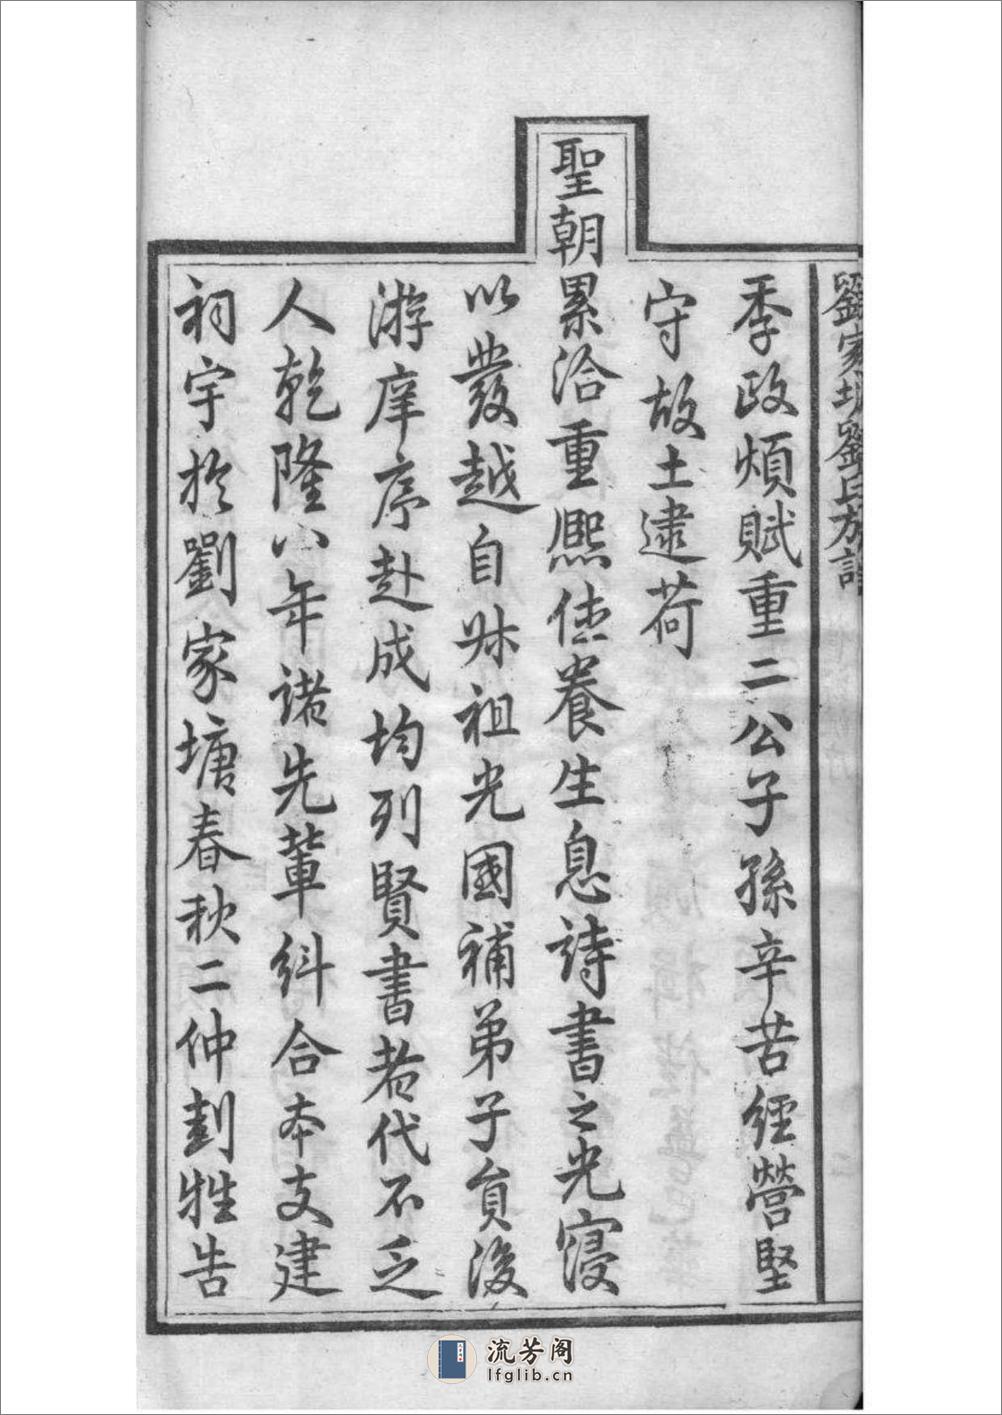 劉家塘劉氏族譜
季政煩賦重二公子孫辛苦經營堅
守故土逮荷
聖朝累洽重熙休養生息詩書之光寖
以發越自叔祖光國補弟子員後
游庠序赴成均列賢書者代不乏
人乾隆八年諸先輩糾合本支建
祠宇於劉家塘春秋二仲刲牲告
流芳阁
lfglib.cn